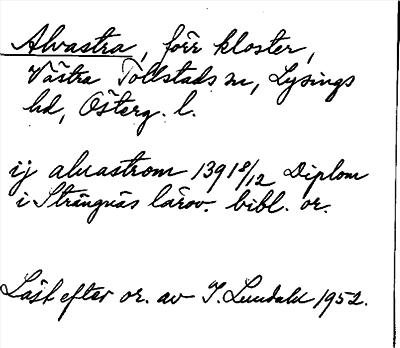 Alvastra, förr kloster,
Västra Tollstads sn, Lysings
hd, Österg. l.
ij alvastrom 1391 8/12 Diplom
i Strängnäs lärov. bibl. or.
Läst efter or. av I. Lundahl 1952.